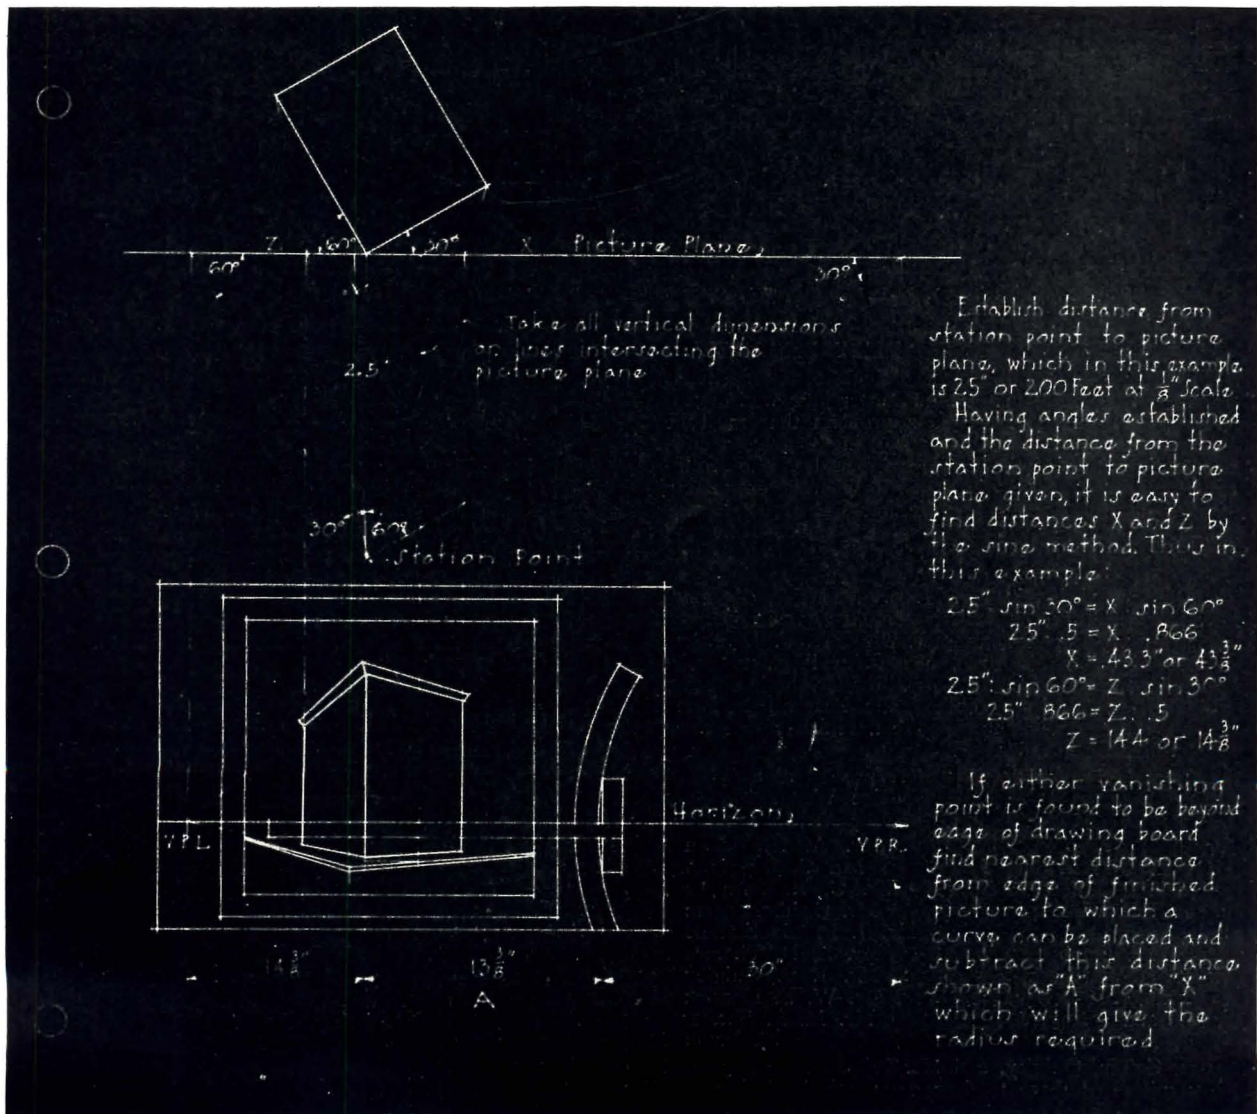 Z 60° 30° X Picture Plane
60° 30°
Take all vertical dimensions
on lines intersecting the
picture plane
2.5"
30° 60°
Station Point
Horizon
V.P.L.
V.P.R.
14 3/8" 13 3/8" 30"
A
Establish distance from
station point to picture
plane, which in this example
is 25" or 200 Feet at 1/8" Scale
Having angles established
and the distance from the
station point to picture
plane given, it is easy to
find distances X and Z by
the sine method. Thus in
this example:
25" : sin 30° = X : sin 60°
25" : .5 = X : .866
X = 43.3" or 43 3/8"
25" : sin 60° = Z : sin 30°
25" : .866 = Z : .5
Z = 14.4 or 14 3/8"
If either vanishing
point is found to be beyond
edge of drawing board
find nearest distance
from edge of finished
picture to which a
curve can be placed and
subtract this distance
shown as "A" from "X"
which will give the
radius required